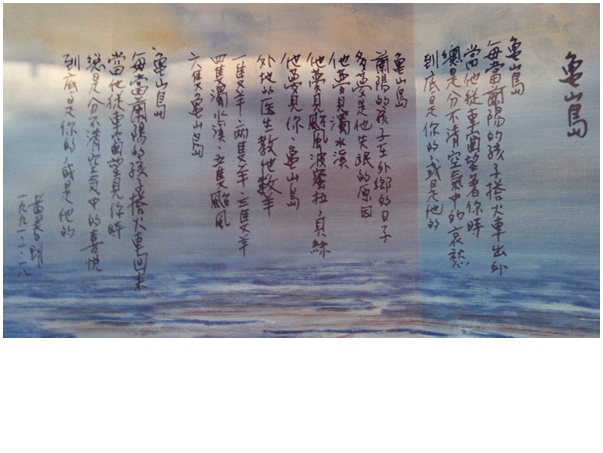 龜山島
龜山島
每當蘭陽的孩子搭火車出外
當他從車窗望著你時
總是分不清空氣中的哀愁
到底是你的,或是他的
龜山島
蘭陽的孩子在外鄉的日子
多夢是他失眠的原因
他夢見濁水溪
他夢見颱風波蜜拉,貝絲
他夢見你,龜山島
外地的醫生教他數羊
一隻羊、兩隻羊、三隻羊
四隻濁水溪、五隻颱風
六隻龜山島
龜山島
每當蘭陽的孩子搭火車回來
當他從車窗望見你時
總是分不清空氣中的喜悅
到底是你的,或是他的
黃春明